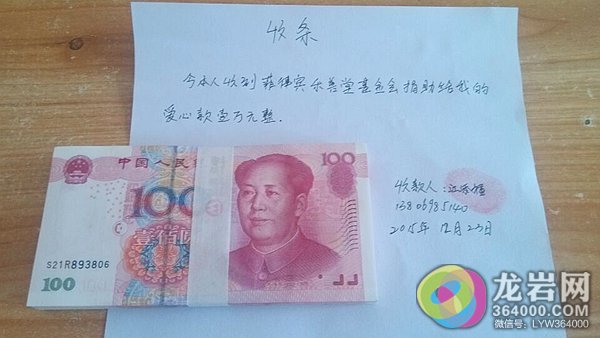 收条
今本人收到菲律宾乐善堂基金会捐助给我的
爱心款壹万元整.
收款人:
13806985140
2015年12月23日
中国人民
100
壹佰
100
S21R893806
100
龙岩网
364000.COM
微信号:LYW364000